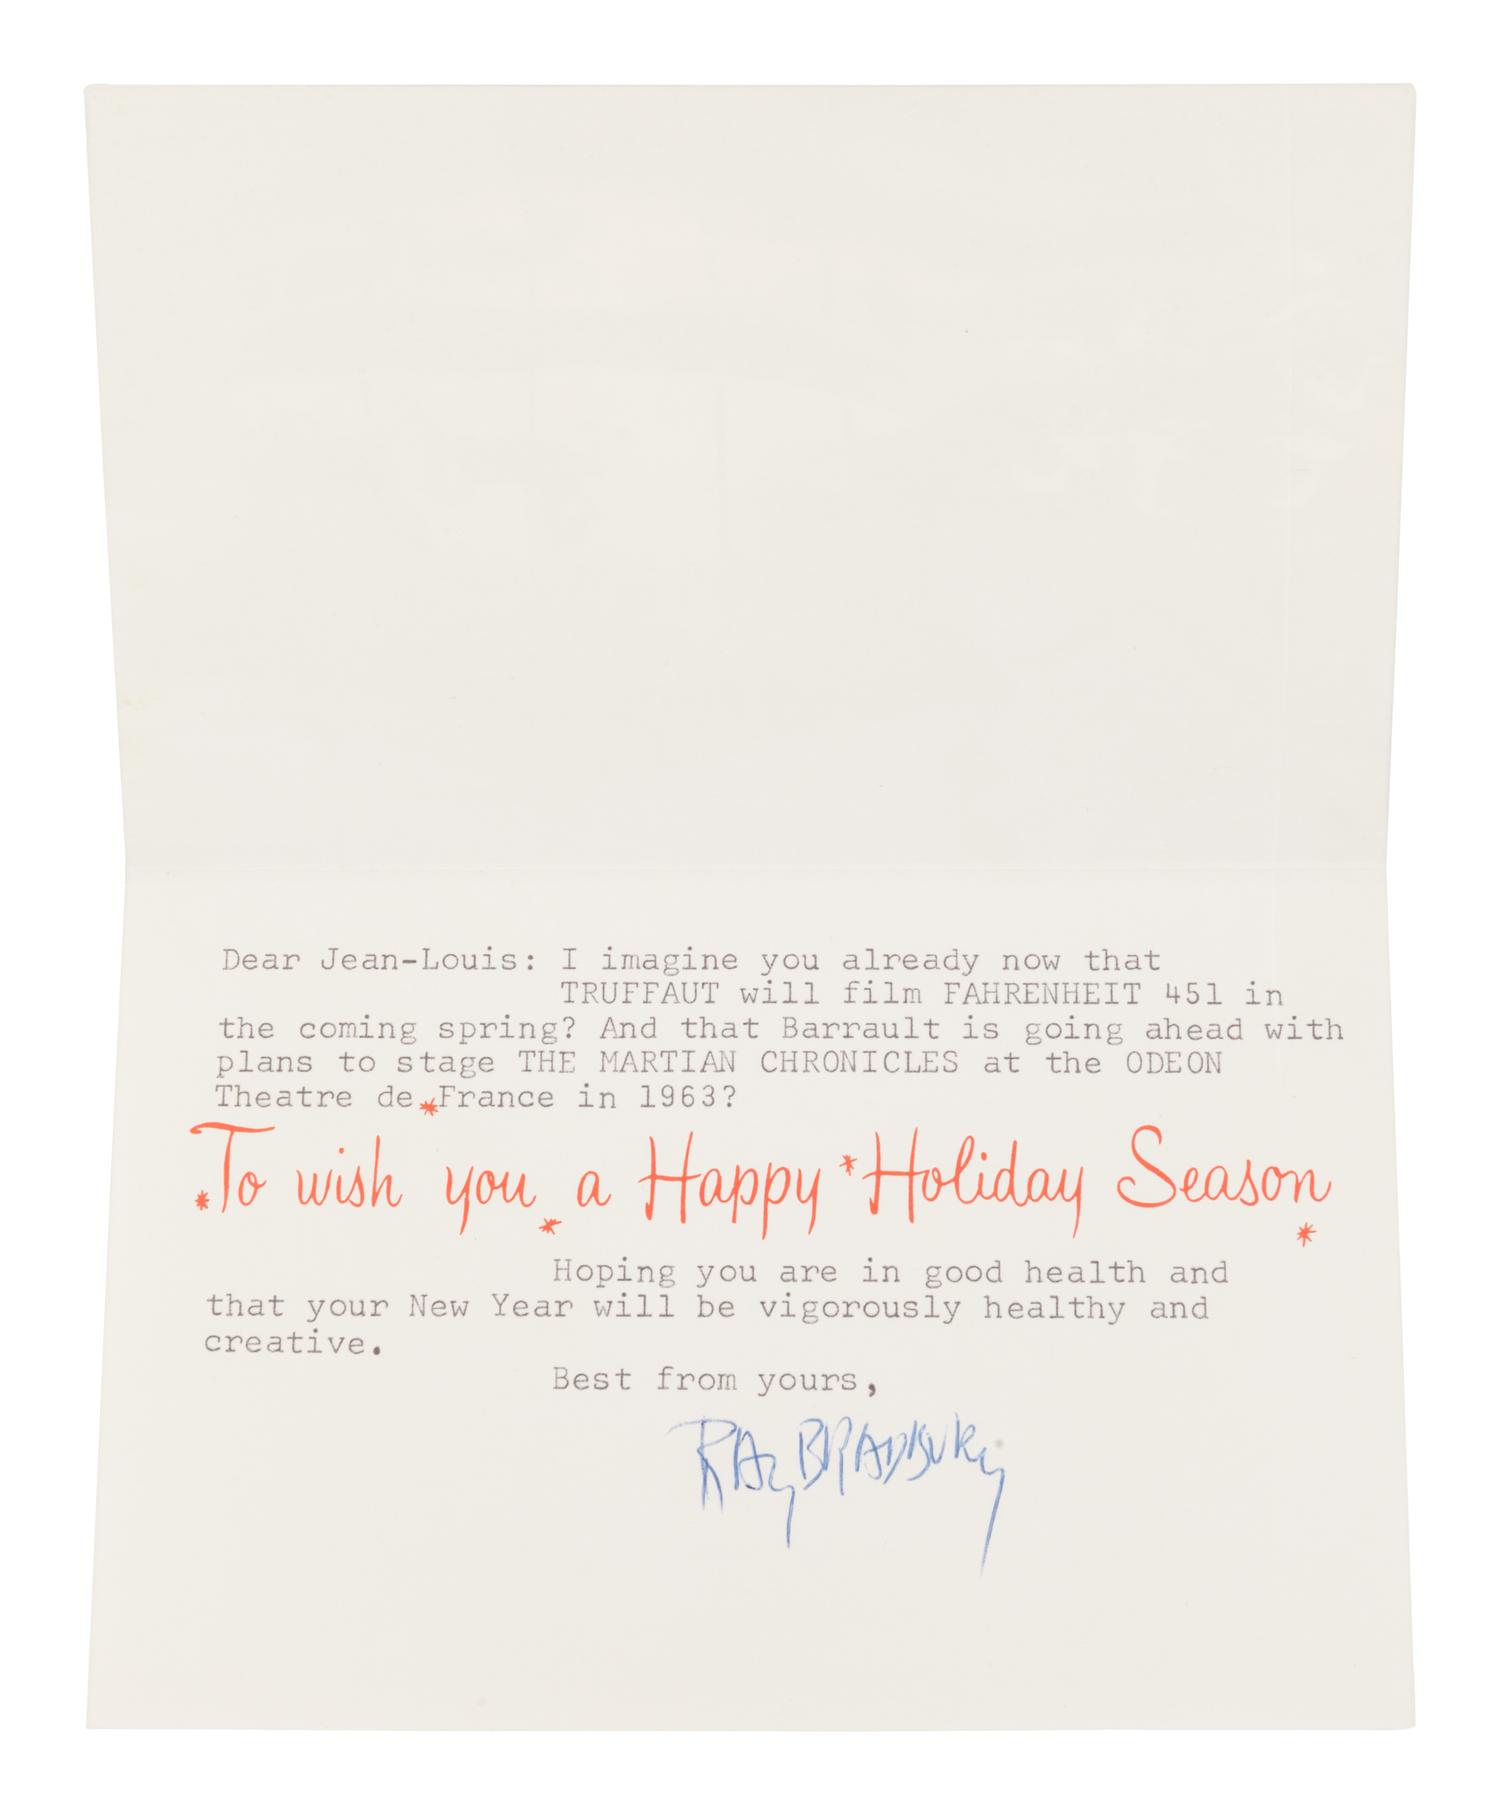 Dear Jean-Louis: I imagine you already now that
TRUFFAUT will film FAHRENHEIT 451 in
the coming spring? And that Barrault is going ahead with
plans to stage THE MARTIAN CHRONICLES at the ODEON
Theatre de France in 1963?
To wish you a Happy Holiday Season
Hoping you are in good health and
that your New Year will be vigorously healthy and
creative.
Best from yours,
RAy BRADBURy